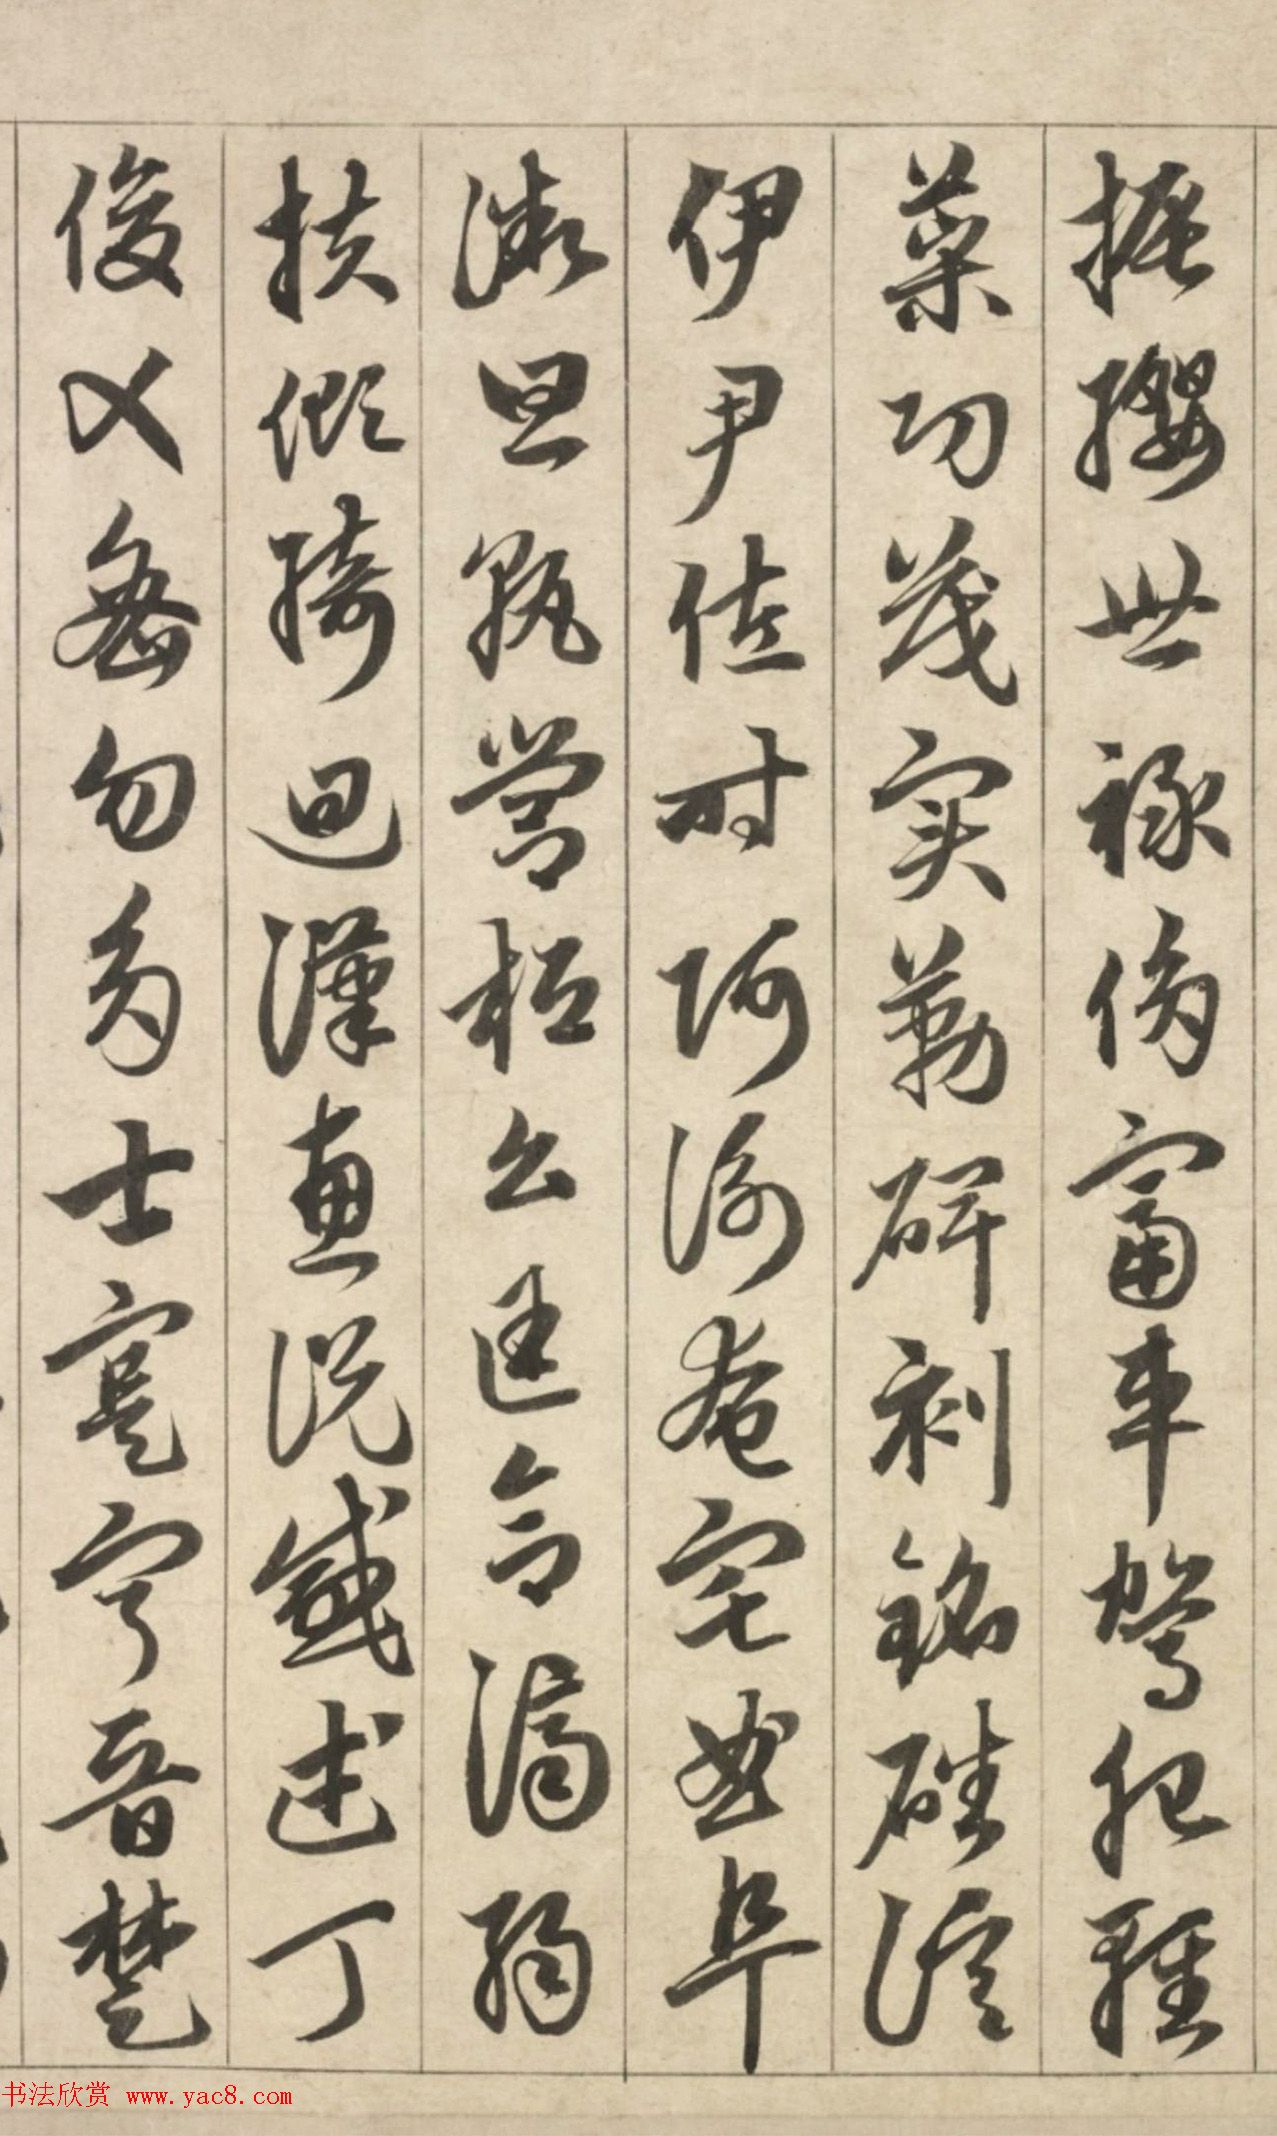 振纓世祿侈富車駕肥輕
策功茂實勒碑刻銘磻溪
伊尹佐時阿衡奄宅曲阜
微旦孰營桓公匡合濟弱
扶傾綺迴漢惠說感武丁
俊乂密勿多士寔寧晉楚
书法欣赏 www.yac8.com